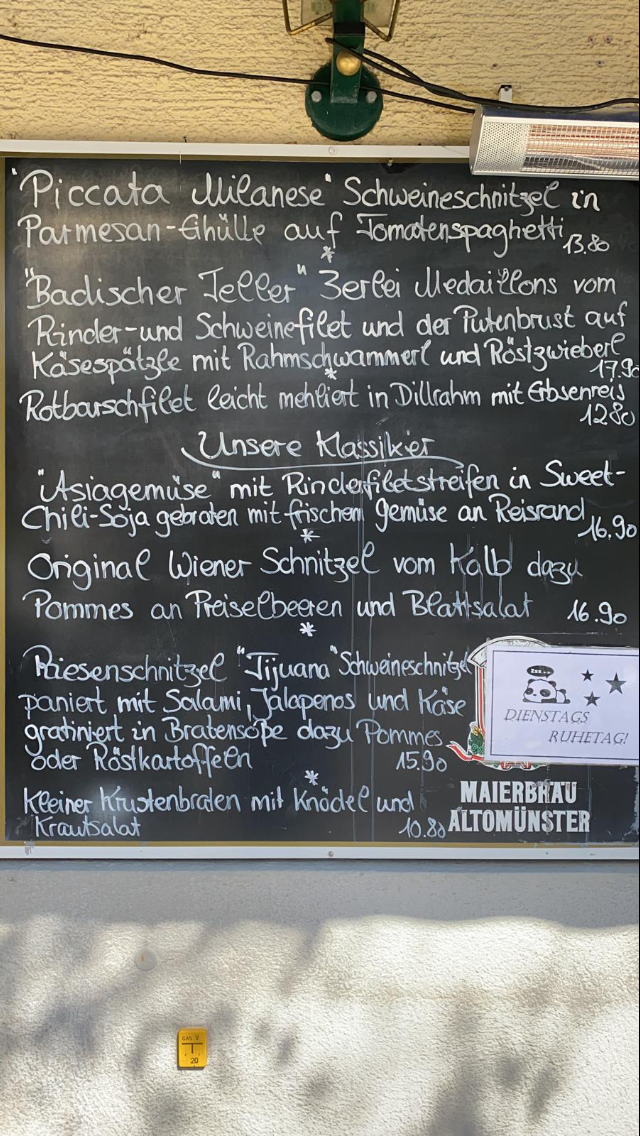 "Piccata Milanese" Schweineschnitzel in
Parmesan-Eihülle auf Tomatenspaghetti 13.80
*
"Badischer Teller" 3erlei Medaillons vom
Rinder-und Schweinefilet und der Putenbrust auf
Käsespätzle mit Rahmschwammerl und Röstzwieberl 17.90
*
Rotbarschfilet leicht mehliert in Dillrahm mit Erbsenreis
12.80
Unsere Klassiker
"Asiagemüse" mit Rinderfiletstreifen in Sweet-
Chili-Soja gebraten mit frischem Gemüse an Reisrand 16.90
*
Original Wiener Schnitzel vom Kalb dazu
Pommes an Preiselbeeren und Blattsalat 16.90
*
Riesenschnitzel "Tijuana" Schweineschnitzel
paniert mit Salami, Jalapenos und Käse
gratiniert in Bratensoße dazu Pommes
oder Röstkartoffeln 15.90
*
Kleiner Krustenbraten mit Knödel und
Krautsalat 10.80
Zzz...
DIENSTAGS
RUHETAG!
MAIERBRÄU
ALTOMÜNSTER
GAS V
20